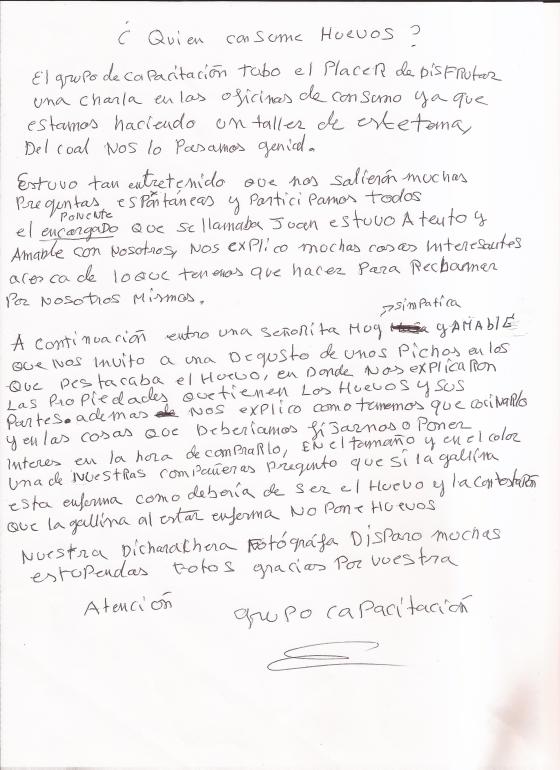 ¿ Quien consome Huevos ?
El grupo de capacitación tubo el Placer de Disfrutar
una charla en las oficinas de consumo ya que
estamos haciendo un taller de este tema,
Del coal nos lo Pasamos genial.
Estuvo tan entretenido que nos salierón muchas
Preguntas espontaneas y Partici Pamos todos
Ponente
el encargado Que se llamaba Juan estuvo Atento y
Amable con nosotros, nos explico mochas cosas interesantes
acerca de lo que tenemos que hacer Para Reclamar
Por nosotros mismos.
simpatica
A continuación entro una señorita Muy y AMABLE
Que nos invito a una Degusto de unos Pichos en los
Que Destacaba el Huevo, en donde nos explicaron
Las Propiedades que tienen Los Huevos y sus
Partes. ademas nos explico como tenemos que cocinarlo
y en las cosas que Deberiamos fijarnos o Poner
interes en la hora de comprarlo, EN el tamaño y en el color
una de nuestras compañeras Pregunto que si la gallina
esta enferma como deboria de ser el Huevo y la contestarón
Que la gallina al estar enferma No Pone Huevos
Nuestra Dicharachera Fotógráfa Disparo muchas
estupendas fotos gracias Por vuestra
Atención
grupo capacitación